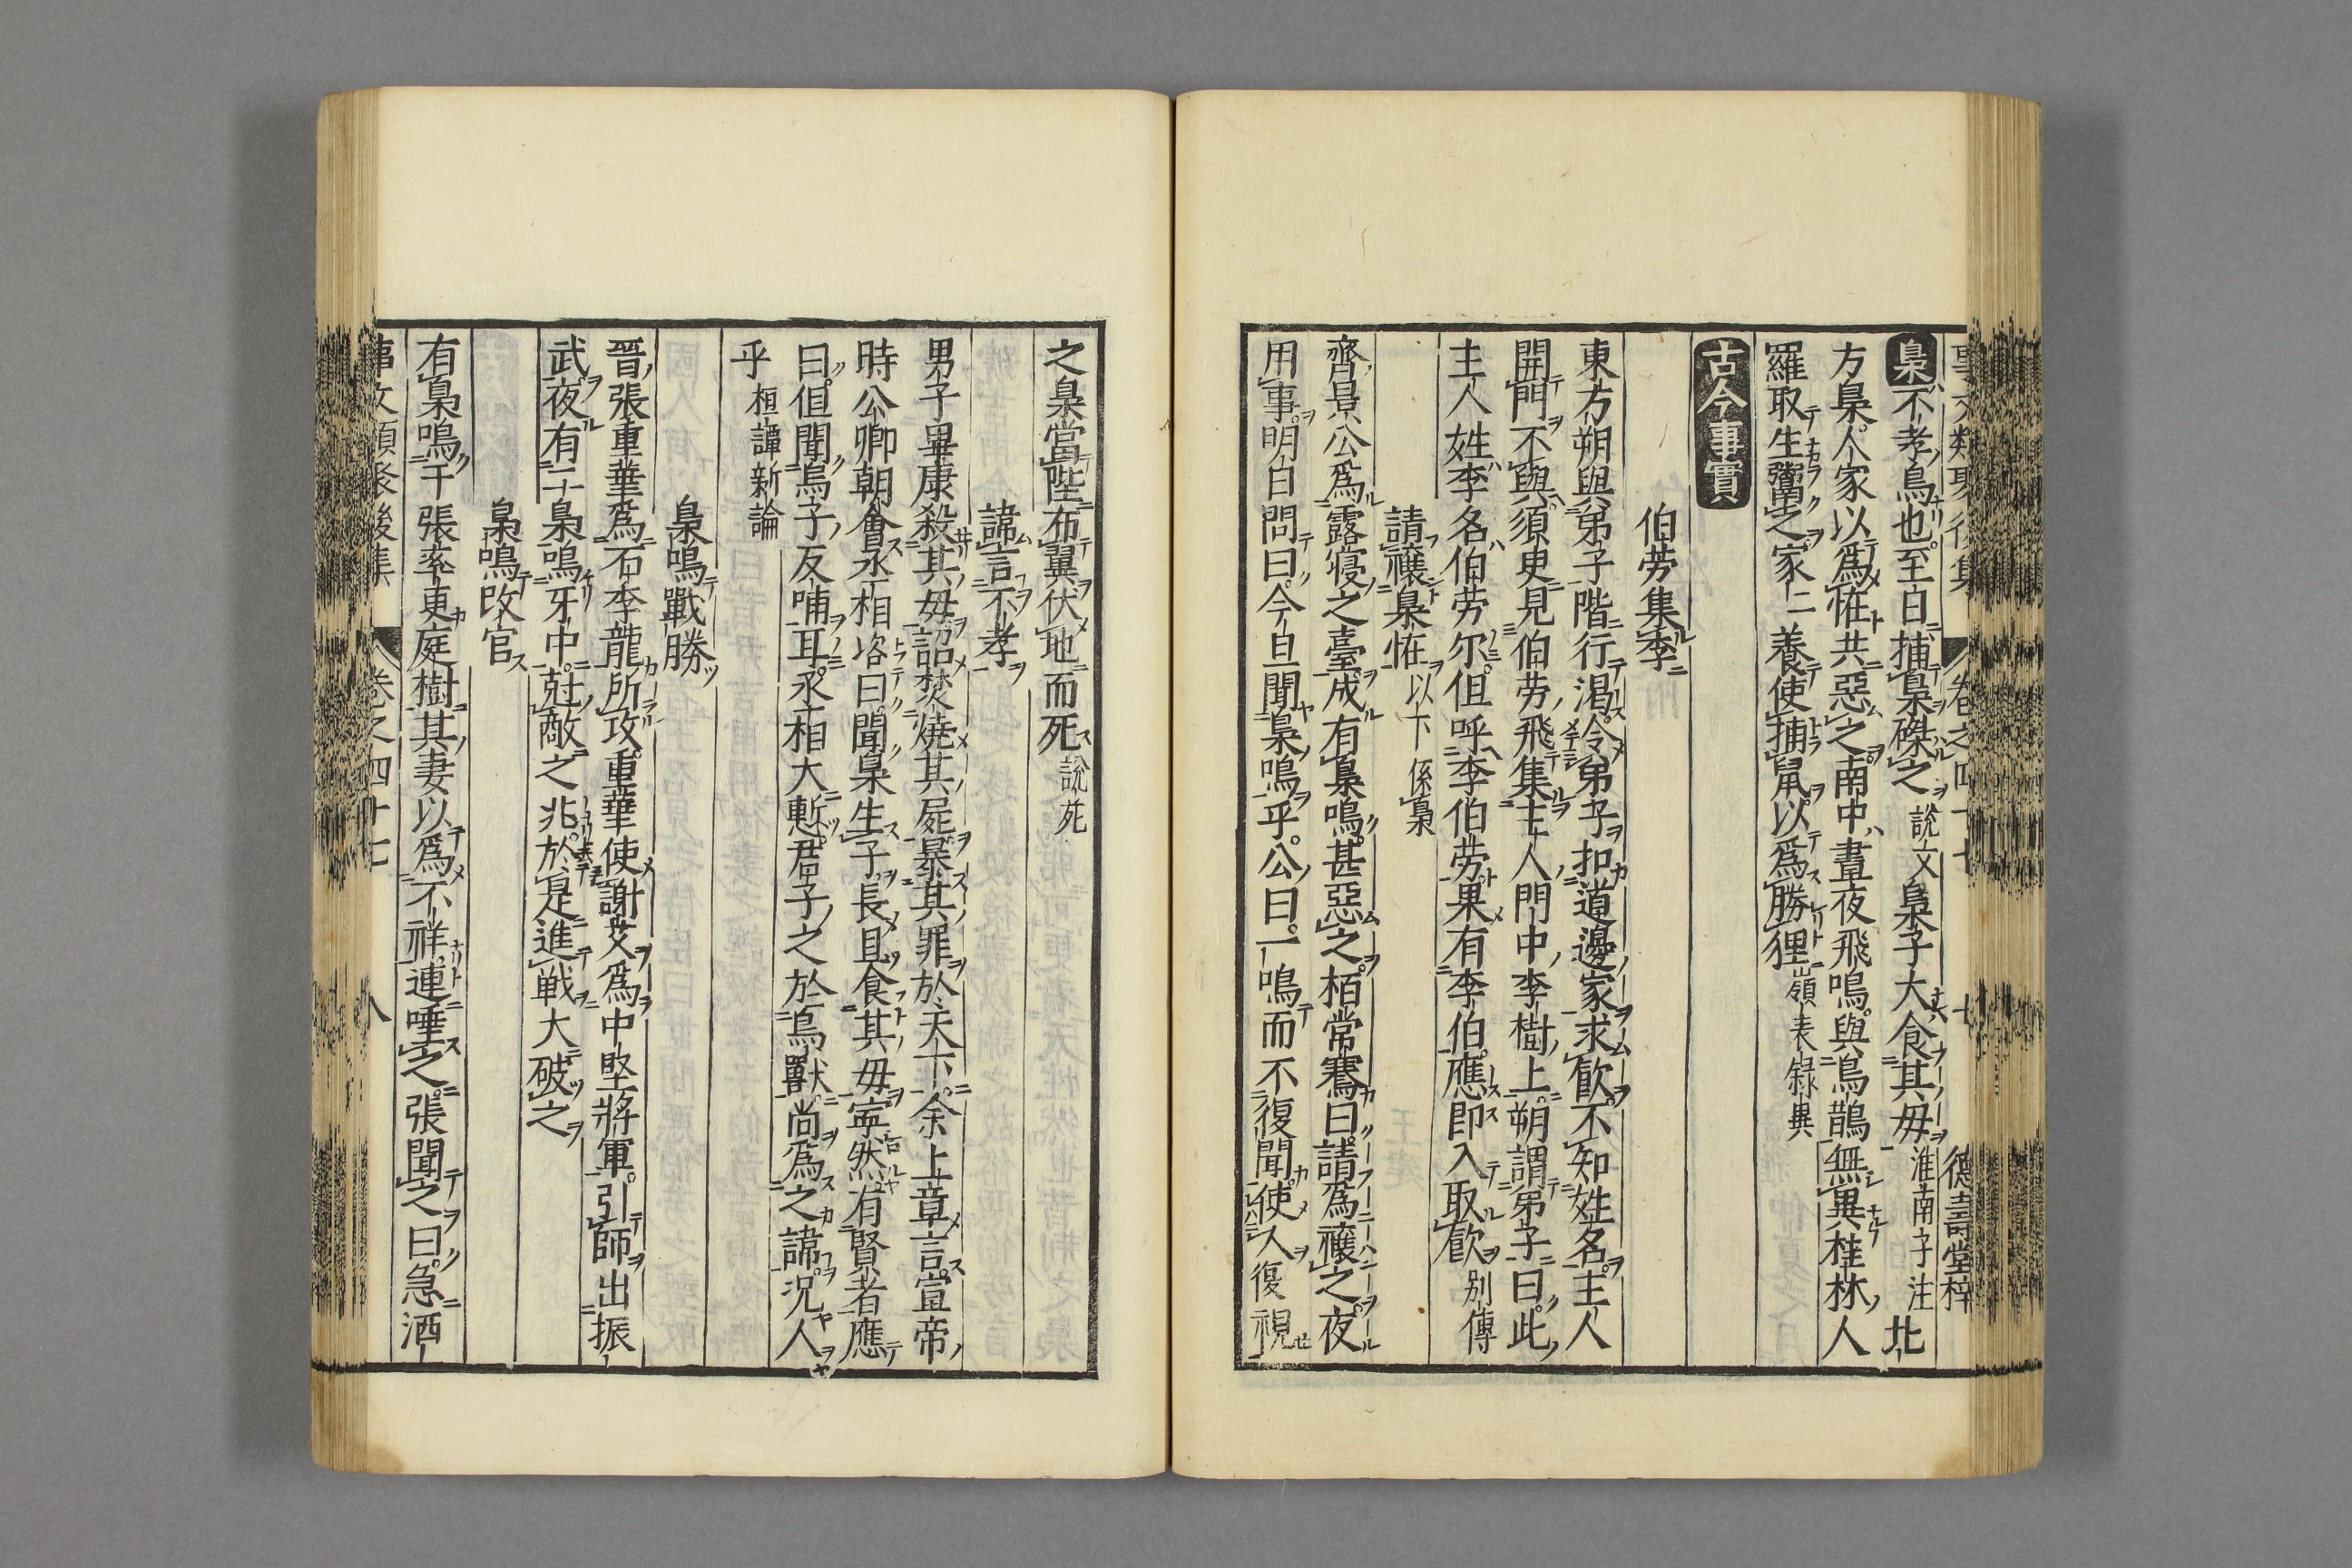 事文類聚後集 卷之四十七 七 德壽堂梓
梟不孝鳥也至日捕梟磔之 說文 梟子大食其母 淮南子注 北
方梟人家以爲恠共惡之南中晝夜飛鳴與烏鵲無異桂林人
羅取生鬻之家二養使捕鼠以爲勝狸 嶺表錄異
古今事實
伯劳集李
東方朔與弟子階行渴令弟子扣道邊家求飮不知姓名主人
開門不與須臾見伯劳飛集主人門中李樹上朔謂弟子曰此
主人姓李名伯劳尔但呼李伯劳果有李伯應即入取飮 别傳
請禳梟恠 以下係梟
齊景公爲露寢之臺成有梟鳴甚惡之栢常騫曰請爲禳之夜
用事明白問曰今旦聞梟鳴乎公曰一鳴而不復聞使人復視
之梟當陛布翼伏地而死 說苑
諱言不孝
男子畢康殺其母詔焚燒其屍暴其罪於天下余上章言宣帝
時公卿朝會丞相垎曰聞梟生子長且食其母寧然有賢者應
曰但聞烏子反哺耳丞相大慙君子之於鳥獸尚爲之諱況人
乎 桓譚新論
梟鳴戰勝
晉張重華爲石季龍所攻重華使謝艾爲中堅將軍引師出振
武夜有二梟鳴牙中尅敵之兆於是進戦大破之
梟鳴改官
有梟鳴于張率更庭樹其妻以爲不祥連唾之張聞之曰急洒
事文類聚後集 卷之四十七 八